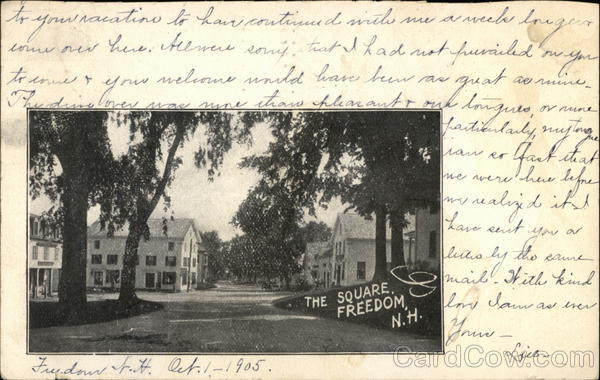 to your vacation to have continued with me a week longer &
come over here. All were sorry that I had not prevailed on you
to come & your welcome would have been as great as mine.
The drive over was more than pleasant & our tongues, or more
particularly, my tongue
ran so fast that
we were here before
we realized it. I
have sent you a
by the same
mail. With kind
love I am as ever
Yours
THE SQUARE,
FREEDOM,
N.H.
Freedom N.H. Oct. 1-1905.
CardCow.com